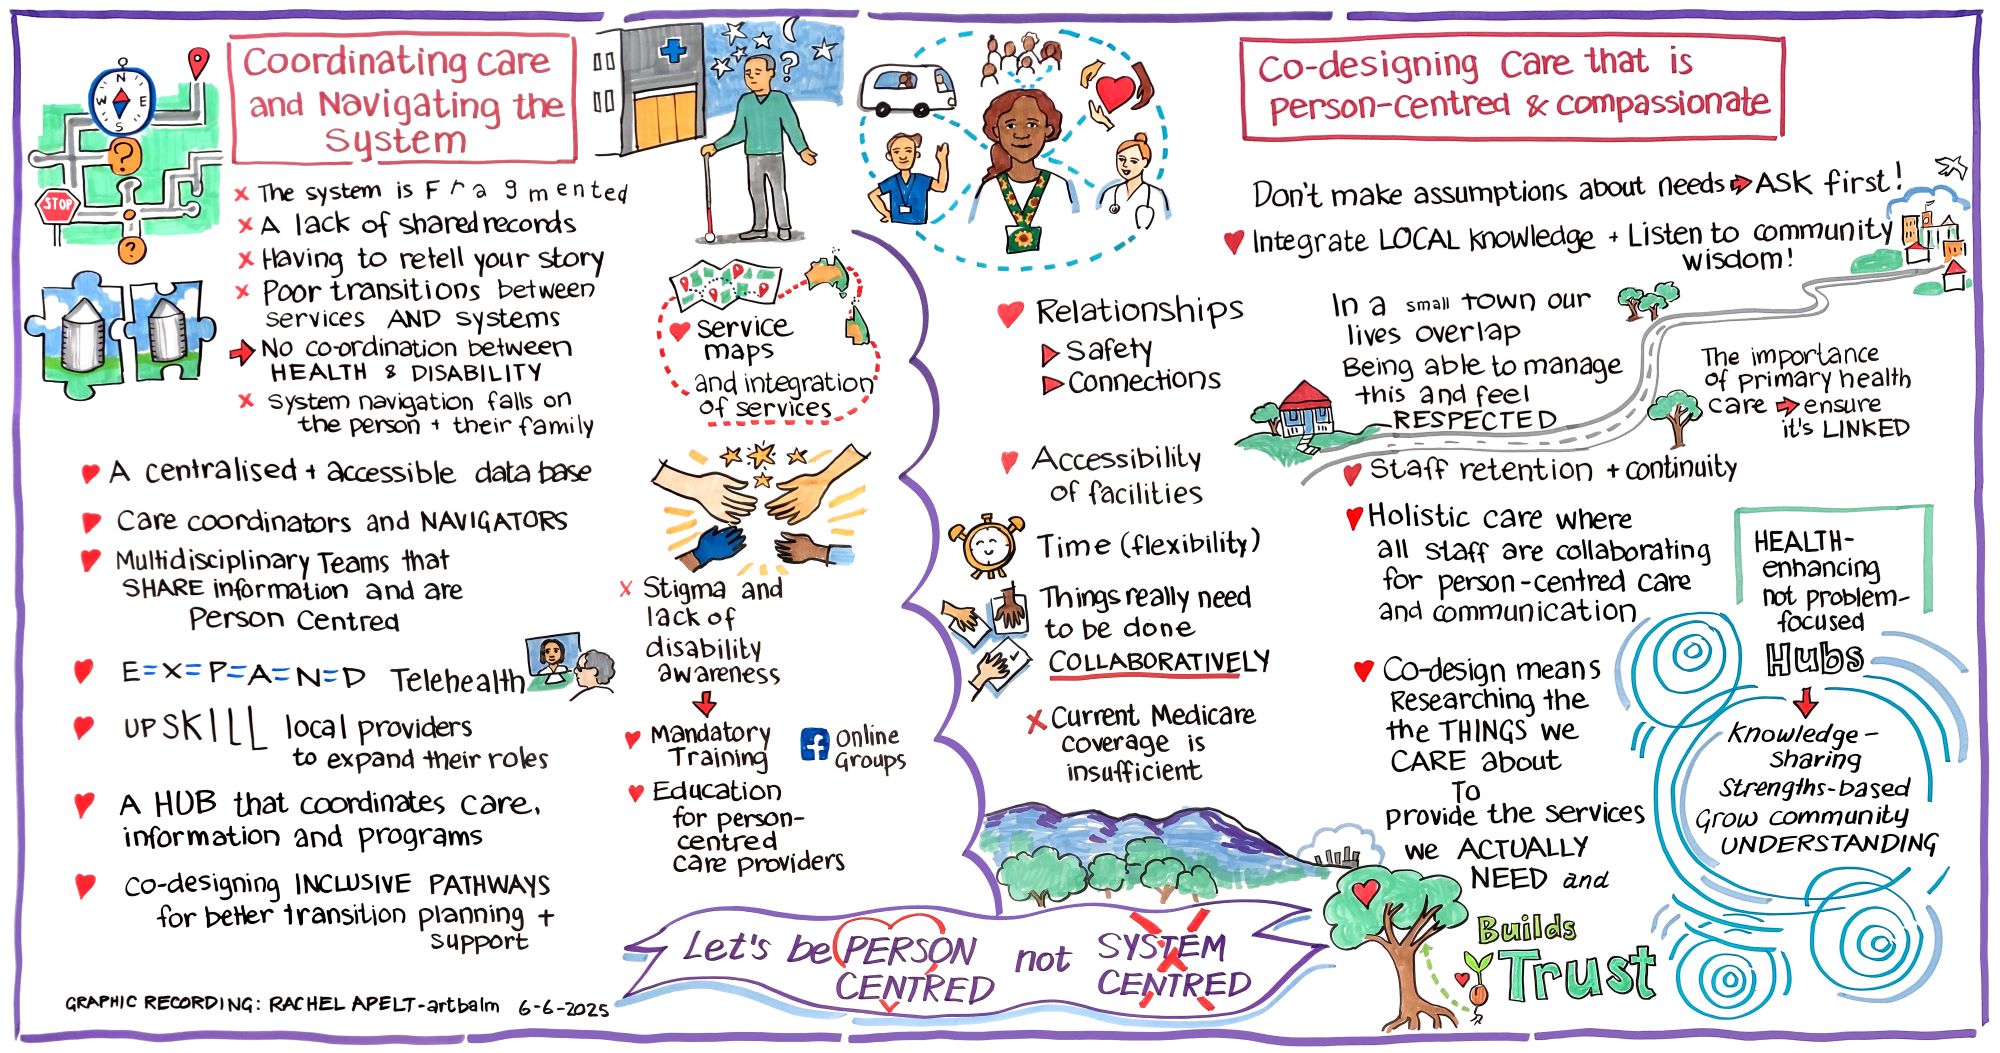 Coordinating care
and Navigating the
System
N
W E
S
?
STOP
?
?
x The system is Fragmented
x A lack of shared records
x Having to retell your story
x Poor transitions between
services AND systems
No co-ordination between
HEALTH & DISABILITY
x System navigation falls on
the person + their family
A centralised + accessible data base
Care coordinators and NAVIGATORS
Multidisciplinary Teams that
SHARE information and are
Person Centred
E=X=P=A=N=D Telehealth
UPSKILL local providers
to expand their roles
A HUB that coordinates care,
information and programs
Co-designing INCLUSIVE PATHWAYS
for better transition planning +
support
GRAPHIC RECORDING: RACHEL APELT-artbalm 6-6-2025
service
maps
and integration
of services
x Stigma and
lack of
disability
awareness
Mandatory
Training
f Online
Groups
Education
for person-
centred
care providers
Co-designing Care that is
person-centred & compassionate
Don't make assumptions about needs ASK first!
Integrate LOCAL knowledge + Listen to community
wisdom!
Relationships
Safety
Connections
Accessibility
of facilities
Time (flexibility)
Things really need
to be done
COLLABORATIVELY
x Current Medicare
coverage is
insufficient
In a small town our
lives overlap
Being able to manage
this and feel
RESPECTED
The importance
of primary health
care ensure
it's LINKED
Staff retention + continuity
Holistic care where
all staff are collaborating
for person-centred care
and communication
Co-design means
Researching the
the THINGS we
CARE about
To
provide the services
we ACTUALLY
NEED and
Builds
Trust
HEALTH-
enhancing
not problem-
focused
Hubs
Knowledge-
sharing
Strengths-based
Grow community
UNDERSTANDING
Let's be PERSON not SYSTEM
CENTRED CENTRED